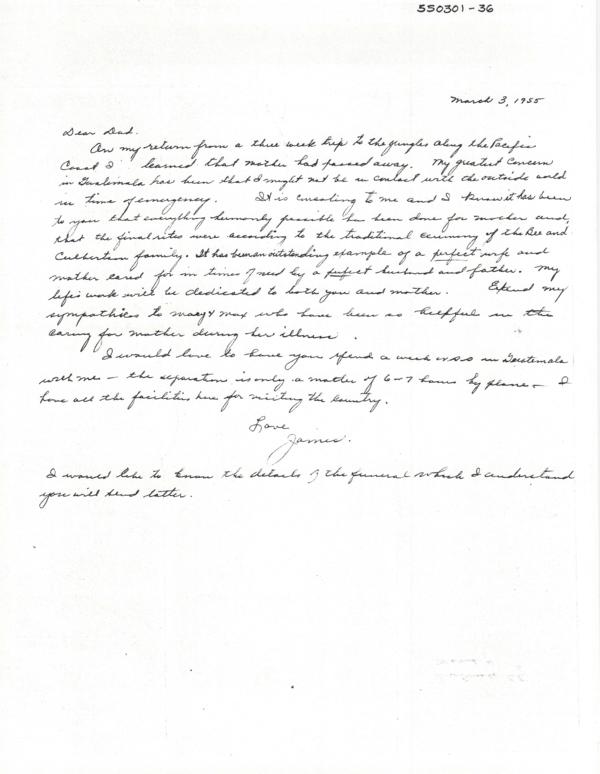 550301-36
March 3, 1955
Dear Dad.
On my return from a three week trip to the jungles along the Pacific
Coast I learned that mother had passed away. My greatest Concern
in Guatemala has been that I might not be in contact with the outside world
in time of emergency. It is consoling to me and I know it has been
to you that everything humanly possible has been done for mother and,
that the final rites were according to the traditional ceremony of the Bee and
Culbertson family. It has been an outstanding example of a perfect wife and
mother cared for in time of need by a perfect husband and father. My
life's work will be dedicated to both you and mother. Extend my
sympathies to Macy & Max who have been so helpful in the
caring for mother during her illness.
I would love to have you spend a week or so in Guatemala
with me - the separation is only a matter of 6-7 hours by plane - I
have all the facilities here for visiting the country.
Love
James.
I would like to know the details of the funeral which I understand
you will send latter.